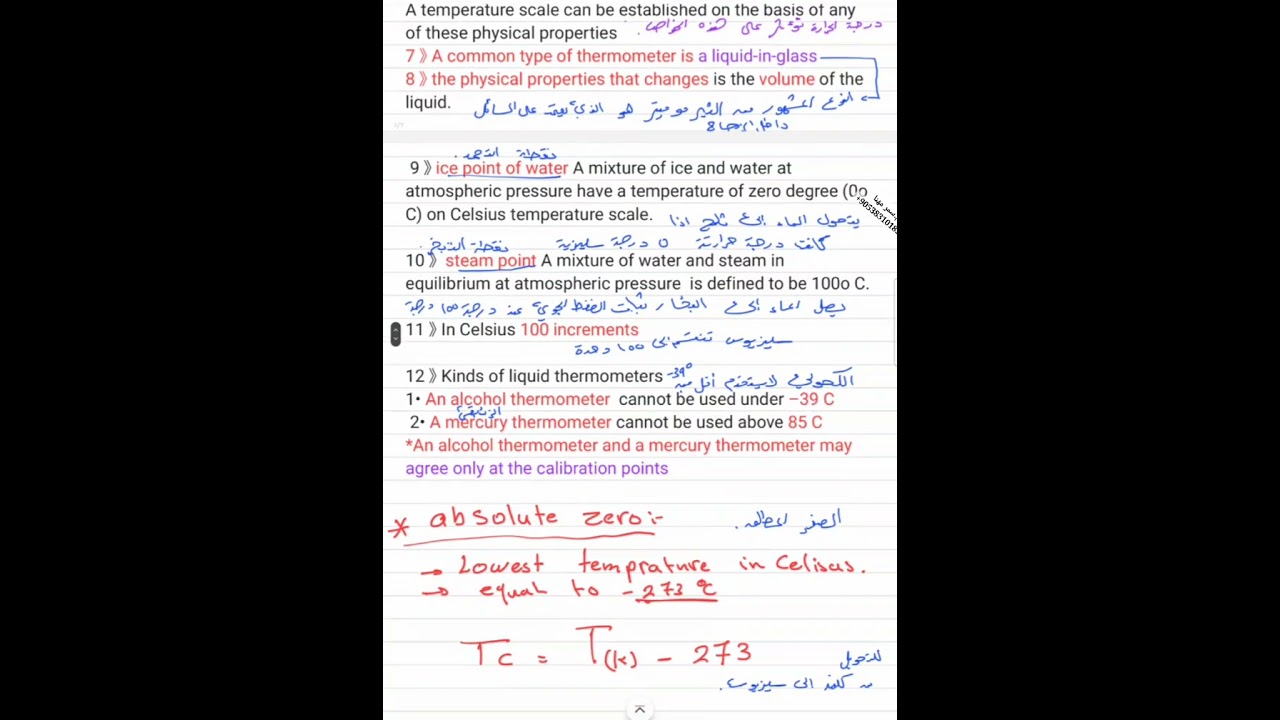 A temperature scale can be established on the basis of any
of these physical properties درجة الحرارة تؤثر على هذه الخواص.
7》A common type of thermometer is a liquid-in-glass
8》the physical properties that changes is the volume of the
liquid. النوع المشهور من الثيرموميتر هو الذي يعتمد على السائل
داخل
نقطة التجمد.
9》ice point of water A mixture of ice and water at
atmospheric pressure have a temperature of zero degree (0o
C) on Celsius temperature scale. يتحول الماء الى ثلج اذا
كانت درجة حرارته 0 درجة سليزية
نقطة التبخر.
10》steam point A mixture of water and steam in
equilibrium at atmospheric pressure is defined to be 100o C.
يصل الماء الى البخار بثبات الضغط الجوي عند درجة 100 درجة
11》In Celsius 100 increments
سليزيوس تنقسم الى 100 وحدة
12》Kinds of liquid thermometers الكحولي لا يستخدم أقل من -39°
1• An alcohol thermometer cannot be used under –39 C
الزئبقي
2• A mercury thermometer cannot be used above 85 C
*An alcohol thermometer and a mercury thermometer may
agree only at the calibration points
* absolute zero:- الصفر المطلق.
→ Lowest temprature in Celisus.
→ equal to -273 °C
Tc = T(k) - 273 للتحويل
من كلفن الى سيزيوس.